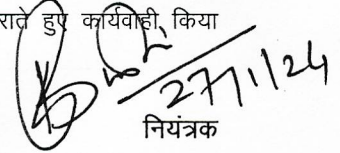 राते हुए कार्यवाही किया
27/1/24
नियंत्रक